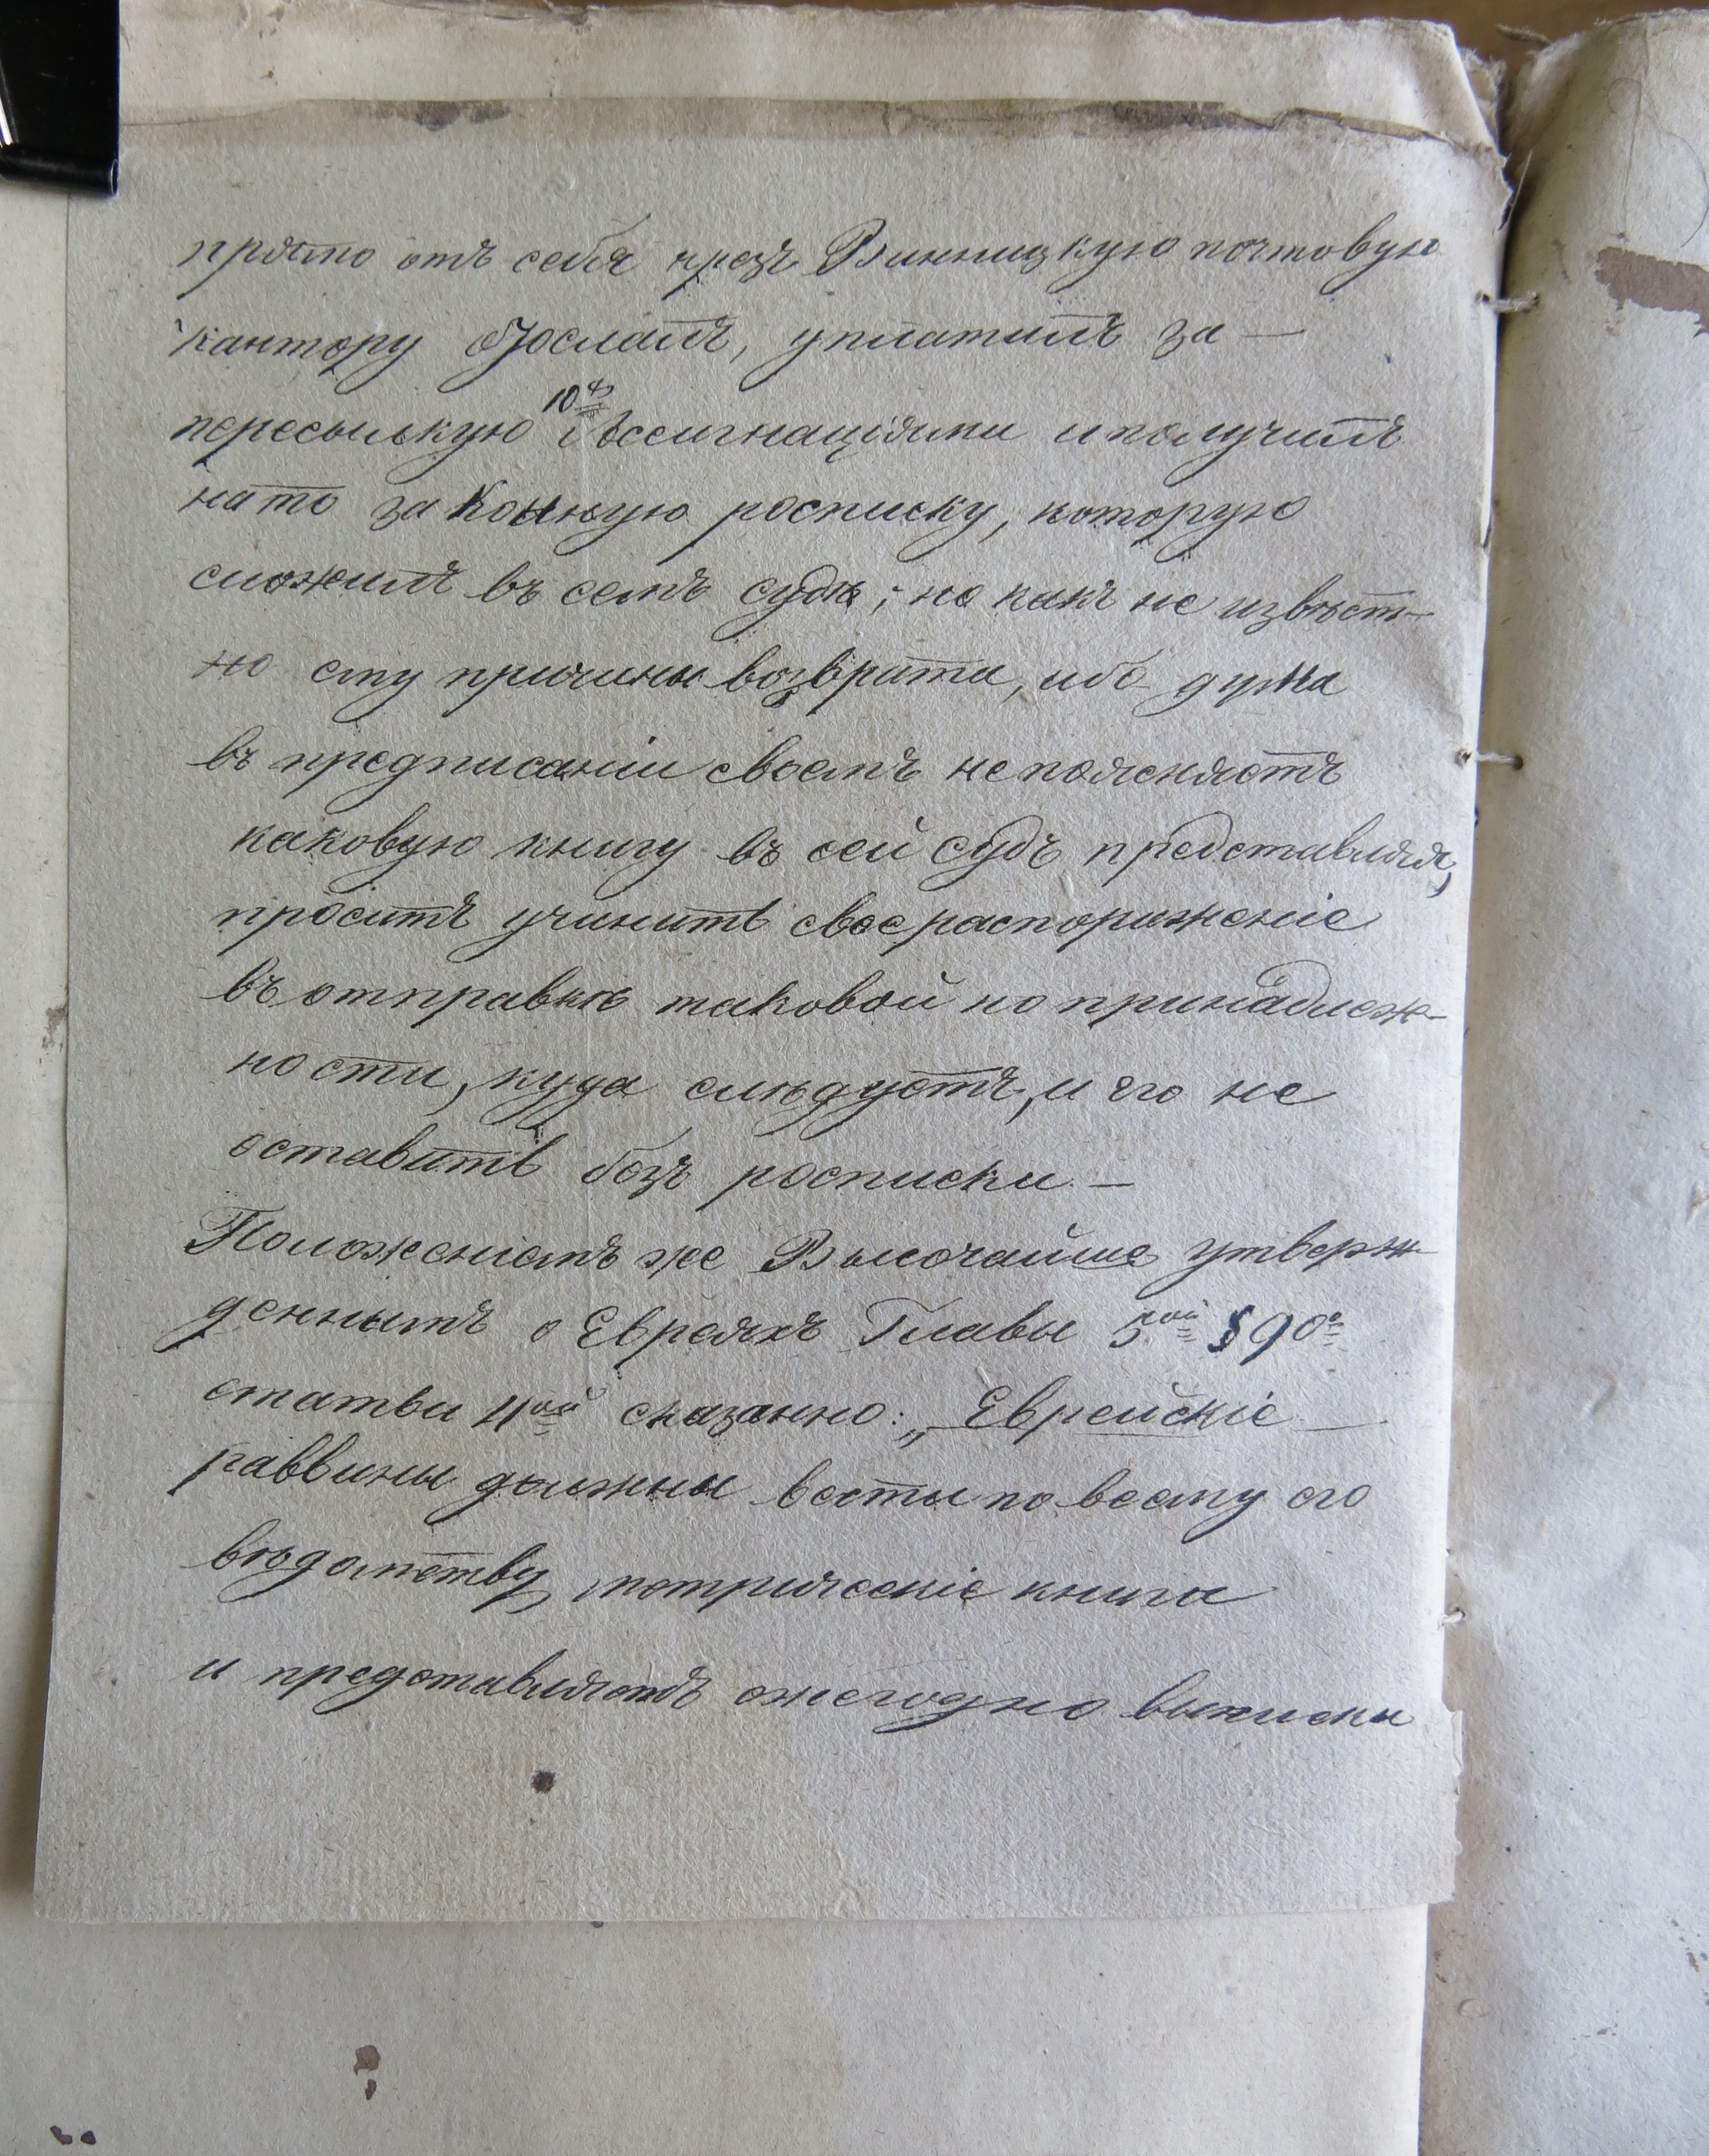 прямо отъ себя чрезъ Винницкую почтовую
кантору отослалъ, уплатилъ за —
пересылкую 10 ассигнаціями и получилъ
на то законную росписку, которую
сложилъ въ семъ судѣ; но какъ не извѣст-
но ему причины возврата, ибо дума
въ предписаніи своемъ не поясняетъ
каковую книгу въ сей судъ представляя,
проситъ учинить свое распоряженіе
въ отправкѣ таковой по принадлеж-
ности, куда слѣдуетъ, и его не
оставить безъ росписки. —
Положеніемъ же Высочайше утверж-
деннымъ о Евреяхъ Главы 5ой § 90го
статьи 4ой сказанно: „Еврейскіе —
раввины должны вести по всему его
вѣдомству метрическіе книги
и представляютъ ежегодно выписки